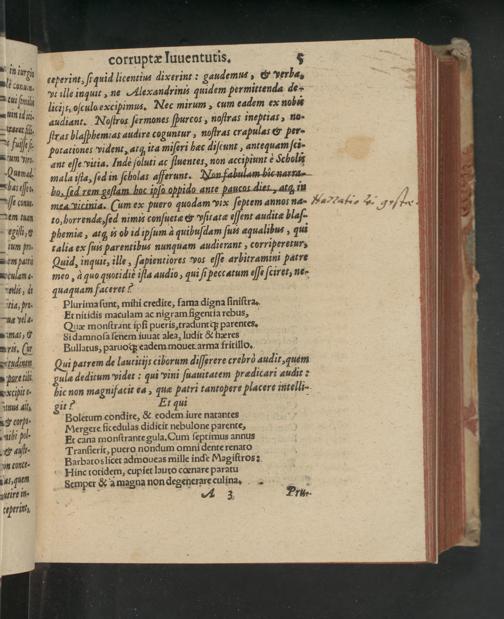 corruptæ Iuuentutis. 5
ceperint, si quid licentius dixerint: gaudemus, & verba,
vt ille inquit, ne Alexandrinis quidem permittenda de-
licijs, osculo excipimus. Nec mirum, cum eadem ex nobis
audiant. Nostros sermones spurcos, nostras ineptias, no-
stras blasphemias audire coguntur, nostras crapulas & per-
potationes vident, atq; ita miseri hæc discunt, antequam sci-
ant esse vitia. Inde soluti ac fluentes, non accipiunt è Scholis
mala ista, sed in scholas afferunt. Non fabulam hic narra-
bo, sed rem gestam hoc ipso oppido ante paucos dies, atq; in
mea vicinia. Cum ex puero quodam vix septem annos na-
to, horrendæ, sed nimis consuetæ & vsitatæ essent auditæ blas-
phemiæ, atq; is ob id ipsum à quibusdam suis æqualibus, qui
talia ex suis parentibus nunquam audierant, corriperetur,
Quid, inquit, ille, sapientiores vos esse arbitramini patre
meo, à quo quotidiè ista audio, qui si peccatum esse sciret, ne-
quaquam faceret?
Plurima sunt, mihi credite, fama digna sinistra,
Et nitidis maculam ac nigram figentia rebus,
Quæ monstrant ipsi pueris, traduntq; parentes.
Si damnosa senem iuuat alea, ludit & hæres
Bullatus, paruoq; eadem mouet arma fritillo.
Qui patrem de lautitijs ciborum disserere crebrò audit, quem
gula deditum videt: qui vini suauitatem prædicari audit:
hic non magnifacit ea, quæ patri tantopere placere intelli-
git? Et qui
Boletum condire, & eodem iure natantes
Mergere ficedulas didicit nebulone parente,
Et cana monstrante gula. Cum septimus annus
Transierit, puero nondum omni dente renato
Barbatos licet admoueas mille inde Magistros:
Hinc totidem, cupiet lauto cœnare paratu
Semper & à magna non degenerare culina.
A 3 Pru-
Narratio rei gestæ.